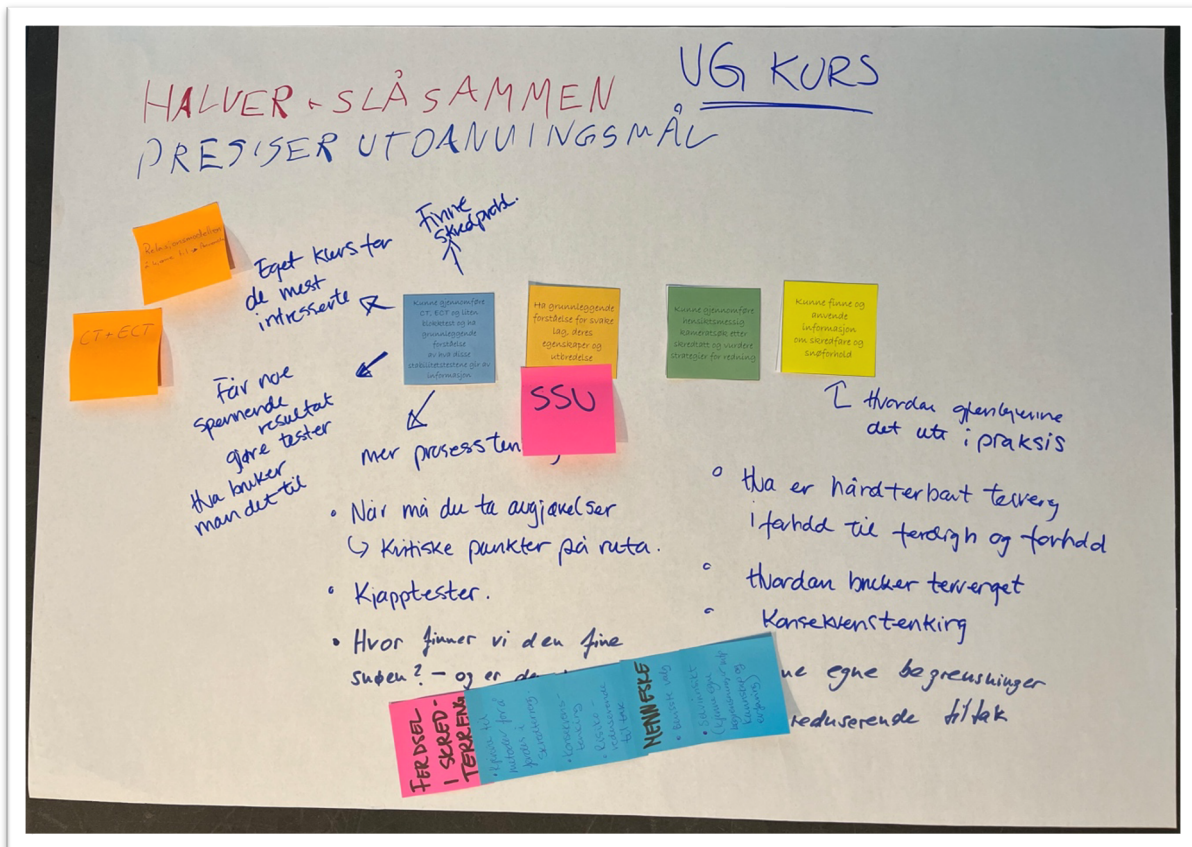 UG KURS
HALVER + SLÅ SAMMEN
PRESISER UTDANNINGSMÅL
Finne
skredprobl.
Relasjonsmetoden
Eget kurs for
de mest
intresserte
CT + ECT
Kunne gjennomføre
CT, ECT og liten
blokktest og ha
grunnleggende
forståelse
av hva disse
stabilitetstestene gir av
informasjon
Ha grunnleggende
forståelse for svake
lag, deres
egenskaper og
utbredelse
Kunne gjennomføre
hensiktsmessig
kameratsøk etter
skredtatt og vurdere
strategier for redning
Kunne finne og
anvende
informasjon
om skredfare og
snøforhold
SSU
Får noe
spennende
resultat
gjøre tester
Hva bruker
man det til
mer prosessten
Hvordan gjenkjenne
det ute i praksis
• Når må du ta avgjørelser
↳ Kritiske punkter på ruta.
• Kjapptester.
• Hvor finner vi den fine
snøen? – og er
• Hva er håndterbart terreng
i forhold til ferdigh og forhold
• Hvordan bruker terrenget
• Konsekvenstenking
egne begrensninger
reduserende tiltak
FERDSEL
I SKRED-
TERRENG
• Konsekvens-
tenking
• Risiko-
reduserende
tiltak
MENNESKE
• Bevisste valg